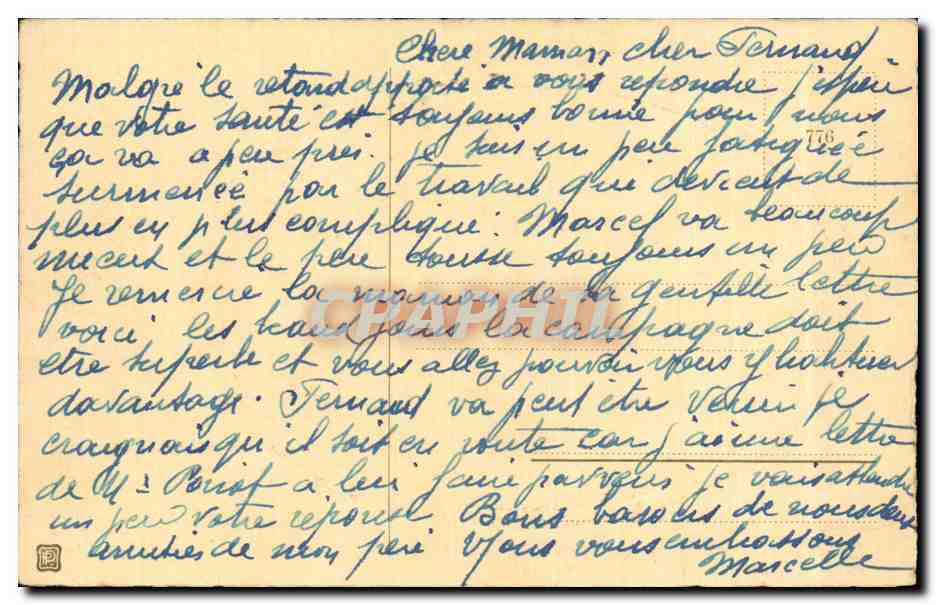 Chere Maman, cher Fernand
Malgré le retard apporté a vous repondre j'espere
que votre santé est toujours bonne pour nous
776
ça va a peu pres. je suis un peu fatiguée
surmenée par le travail qui devient de
plus en plus compliqué. Marcel va beaucoup
mieux et le pere tousse toujours un peu
Je remercie la maman de sa gentille lettre
CPARAMA
voici les beaux jours la campagne doit
etre superbe et vous allez pouvoir vous y habituer
davantage. Fernand va peut etre venir je
craignais qu'il soit en route car j'ai une lettre
de Mr a lui faire parvenir je vais attendre
un peu votre reponse Bons baisers de nous deux
amities de mon pere Nous vous embrassons
Marcelle